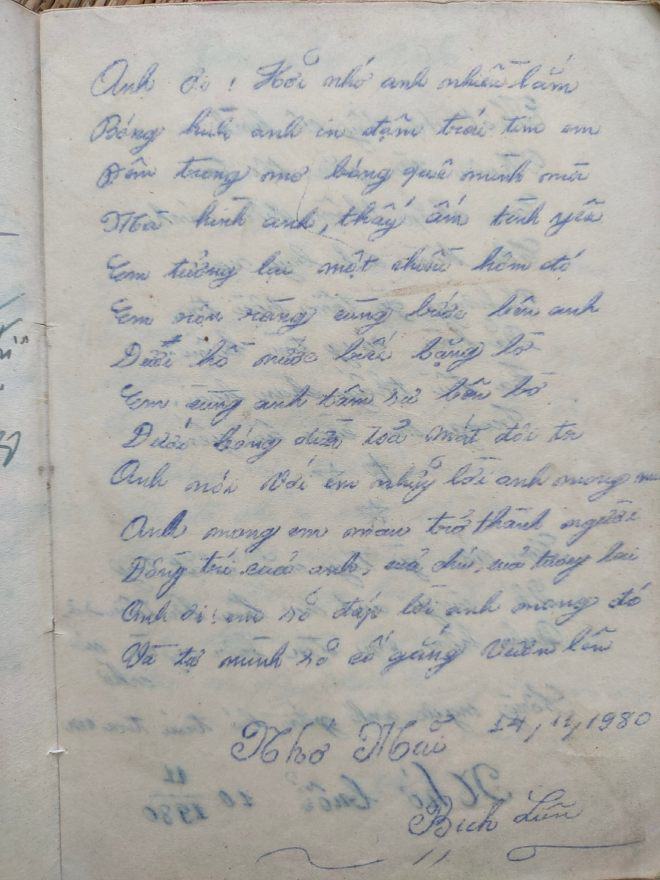 Anh ơi! Hỡi nhớ anh nhiều lắm
Bóng hình anh in đậm trái tim em
Đêm trong mơ bóng quê mình
Mà hình anh, thấy ấm tình yêu
Em tưởng lại một chiều hôm đó
Em rộn ràng cùng bước bên anh
Dưới hồ nước biếc lặng lờ
Em cùng anh tâm sự bên bờ
Dưới bóng dừa toả mát đôi ta
Anh nói với em những lời anh mong
Anh mong em mau trở thành người
Đồng trí của anh, của tương lai
Anh ơi! em sẽ đáp lời anh mong đó
Và tự mình sẽ cố gắng vươn lên
Nhớ Mãi 14, 11, 1980
Bích Liên